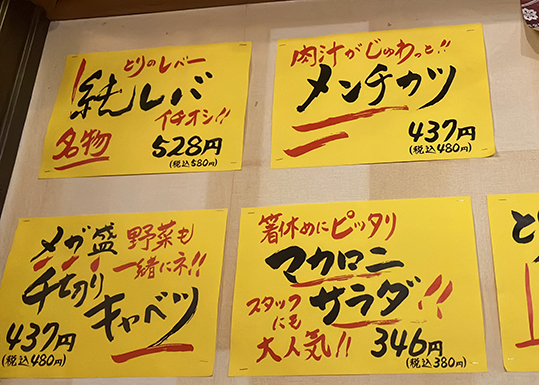 とりのレバー
純レバ
イチオシ!!
名物
528円
(税込580円)
肉汁がじゅわっと!!
メンチカツ
437円
(税込480円)
メガ盛
野菜も
一緒にネ!!
千切り
キャベツ
437円
(税込480円)
箸休めにピッタリ
マカロニ
サラダ!!
スタッフ
にも
大人気!!
346円
(税込380円)
と